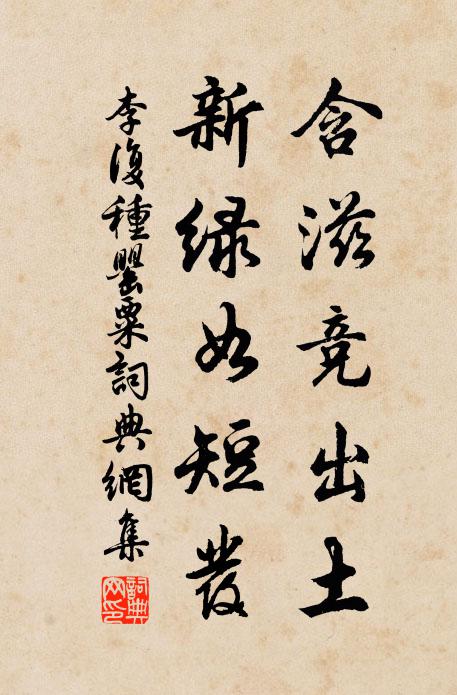 含滋竞出土
新绿如短發
李復種罌粟詞典網集
詞典
网印